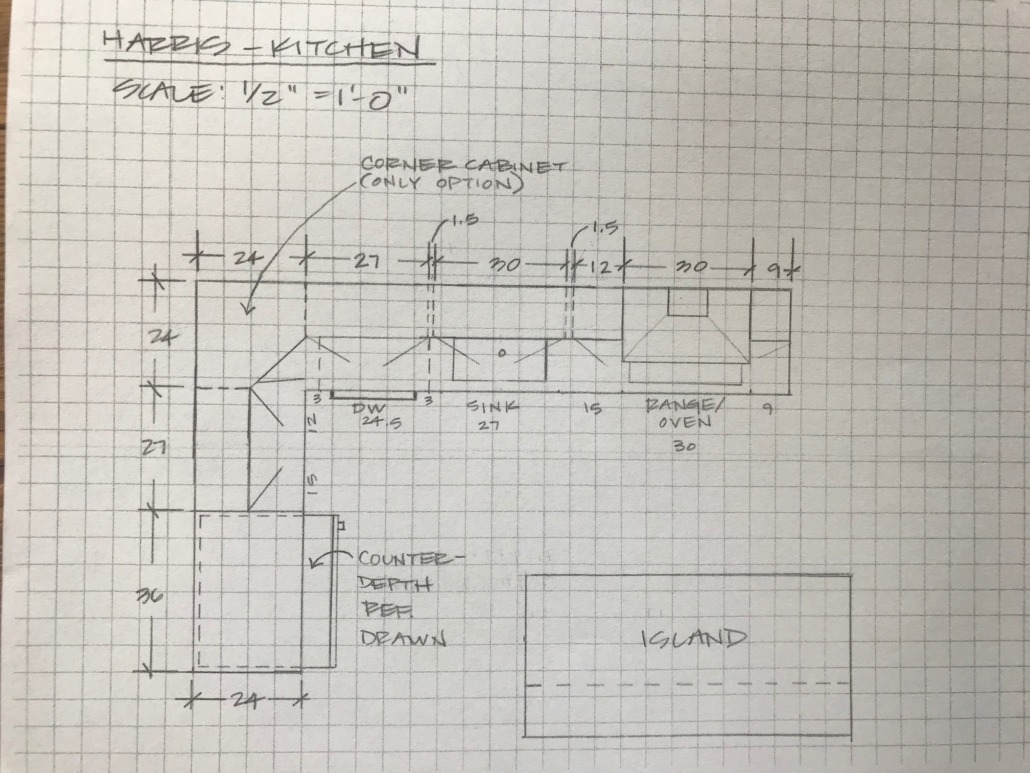 HARRIS - KITCHEN
SCALE: 1/2" = 1'-0"
CORNER CABINET
(ONLY OPTION)
1.5
1.5
24
27
30
12
30
9
24
3
DW
24.5
3
SINK
27
15
RANGE/
OVEN
30
9
12
27
15
COUNTER-
DEPTH
REF.
DRAWN
36
ISLAND
24